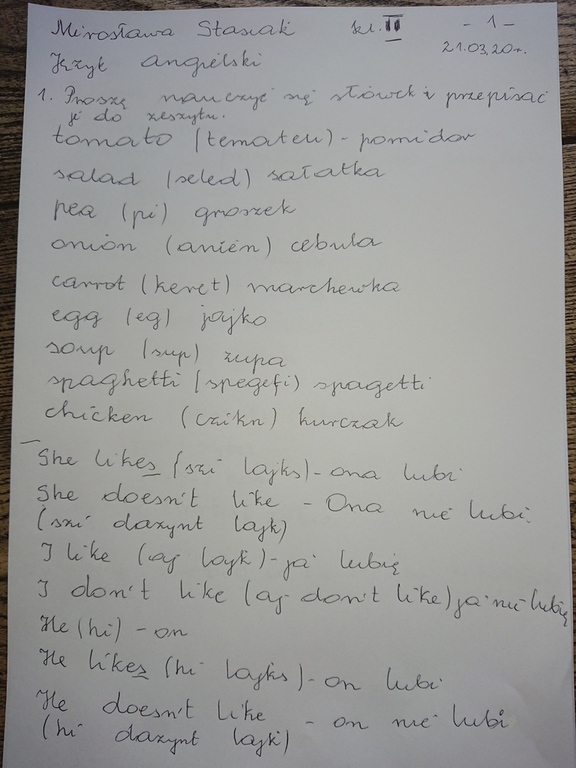 Mirosława Stasiak kl. II - 1 -
21.03.20r.
Język angielski
1. Proszę nauczyć się słówek i przepisać
je do zeszytu.
tomato (temateu) - pomidor
salad (seled) sałatka
pea (pi) groszek
onion (anien) cebula
carrot (keret) marchewka
egg (eg) jajko
soup (sup) zupa
spaghetti (spegeti) spagetti
chicken (czikn) kurczak
She likes (szi lajks) - ona lubi
She doesn't like - Ona nie lubi
(szi dazynt lajk)
I like (aj lajk) - ja lubię
I don't like (aj don't like) ja nie lubię
He (hi) - on
He likes (hi lajks) - on lubi
He doesn't like - on nie lubi
(hi dazynt lajk)